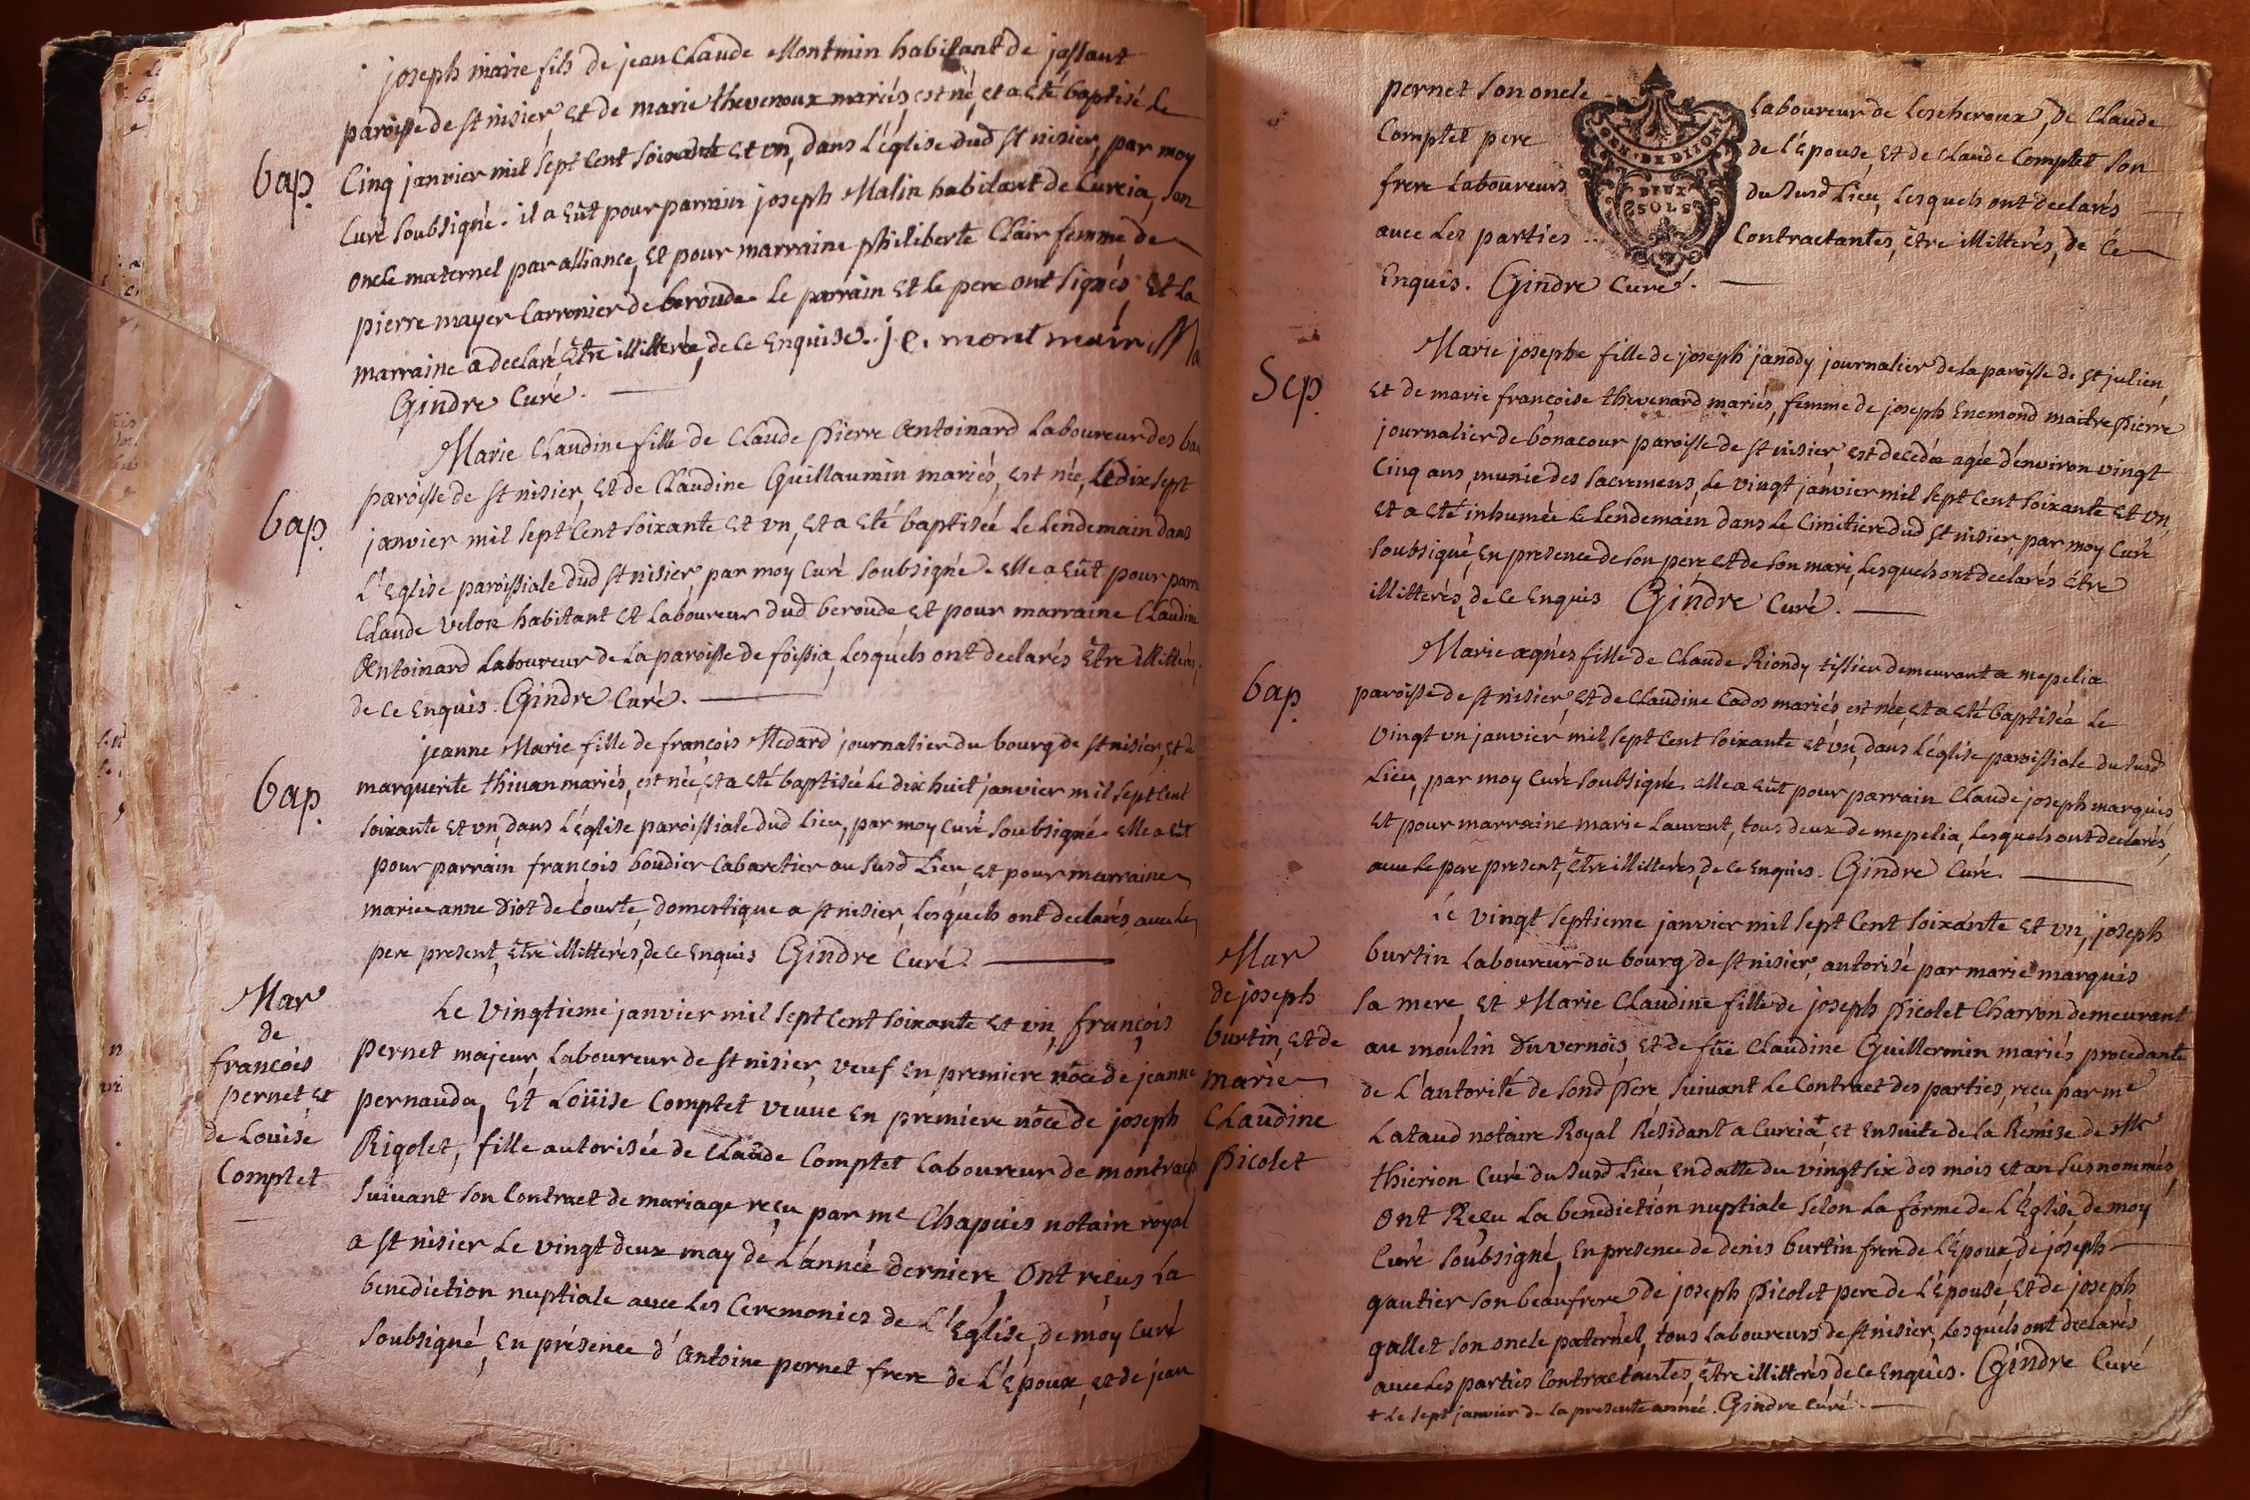 joseph marie fils de jean Claude Montmin habitant de jassaut
paroisse de st nisier, et de marie thevenoux mariés, est né, et a eté baptisé le
bap.
Cinq janvier mil sept cent soixante et vn, dans l'église dud st nisier, par moy
Curé soubsigné. il a eüt pour parrain joseph Malin habitant de Curcia, son
oncle maternel par alliance, et pour marraine philiberte Clair femme de
pierre mayer Carronier de beroude. Le parrain et le pere ont signés, et la
marraine a declaré être illitterée, de ce enquise. j. c. montmain Ma
Gindre Curé.
Marie Claudine fille de Claude Pierre Antoinard Laboureur des
paroisse de st nisier, et de Claudine Guillaumin mariés, est née, le dix sept
bap.
janvier mil sept cent soixante et vn, et a eté baptisée le lendemain dans
L'Eglise paroissiale dud st nisier par moy Curé soubsigné. elle a eüt pour parr
Claude Velon habitant et Laboureur dud beroude, et pour marraine Claudine
Antoinard Laboureur de la paroisse de foissia, Lesquels ont declarés être illitterés,
de ce enquis. Gindre Curé.
jeanne Marie fille de françois Medard journalier du bourg de st nisier, et de
bap.
marguerite thivan mariés, est née, et a eté baptisée le dix huit janvier mil sept cent
soixante et vn, dans L'église paroissiale dud Lieu, par moy curé soubsigné. elle a eüt
pour parrain françois boudier Cabaretier au susd Lieu, et pour marraine
marie anne Diot de Courte, domestique a st nisier, Lesquels ont declarés avec le
pere present, être illitterés, de ce enquis Gindre Curé.
Mar
de
françois
pernet et
de Louise
Complet
Le vingtieme janvier mil sept cent soixante et vn, françois
pernet majeur, Laboureur de st nisier, veuf en premiere nôce de jeanne
pernauda, et Loüise Complet veuve en premiere nôce de joseph
Rigolet, fille autorisée de Claude Complet Laboureur de
suivant son Contract de mariage reçu par me Chapuis notaire royal
a st nisier le vingt deux may de L'année derniere, ont reçus la
benediction nuptiale avec les Ceremonies de L'Eglise, de moy curé
soubsigné, en présence d'Antoine pernet frere de L'époux, et de jean
pernet son oncle Laboureur de Lescheroux, de Claude
GEN. DE DIJON
DEUX
SOLS
Complet pere de l'épouse, et de Claude Complet son
frere Laboureurs du susd Lieu, Lesquels ont declarés
avec les parties Contractantes, être illitterés, de ce
Enquis. Gindre Curé.
Sep.
Marie josephe fille de joseph janody journalier de la paroisse de st julien,
et de marie françoise thevenard mariés, femme de joseph Enemond maitre Pierre
journalier de bonacour paroisse de st nisier est decedée agée d'environ vingt
Cinq ans, munie des sacremens, le vingt janvier mil sept cent soixante et vn,
et a eté inhumée le lendemain dans le Cimitiere dud st nisier, par moy Curé
soubsigné, en presence de son pere et de son mari, Lesquels ont declarés être
illitterés, de ce enquis Gindre Curé.
Marie agnés fille de Claude Riondy tissier demeurant a mepelia
bap.
paroisse de st nisier, et de Claudine Cados mariés, est née, et a eté baptisée le
vingt vn janvier mil sept cent soixante et vn, dans L'église paroissiale du susd
Lieu, par moy Curé soubsigné. elle a eüt pour parrain Claude joseph marquis
et pour marraine marie Laurent, tous deux de mepelia, Lesquels ont declarés,
avec le pere present, être illitterés, de ce enquis. Gindre Curé.
Le vingt septieme janvier mil sept cent soixante et vn, joseph
Mar
de joseph
burtin, et de
marie
Claudine
Picolet
burtin Laboureur du bourg de st nisier, autorisé par marie marquis
sa mere, et Marie Claudine fille de joseph Picolet Charron demeurant
au moulin Duvernois, et de füe Claudine Guillermin mariés, procedante
de L'autorité de sond Pere, suivant le Contract des parties, reçu par me
Lataud notaire Royal Residant a Curcia + et ensuite de la Remise de Mr
thierion Curé du susd Lieu, en datte du vingt six des mois et an susnommés,
ont Reçu la benediction nuptiale selon la forme de L'Eglise, de moy
Curé soubsigné, en presence de denis burtin frere de L'époux, de joseph
gautier son beaufrere, de joseph Picolet pere de L'épouse, et de joseph
gallet son oncle paternel, tous Laboureurs de st nisier, Lesquels ont declarés,
avec les parties Contractantes, être illitterés, de ce enquis. Gindre Curé
+ le sept janvier de la presente année. Gindre Curé.